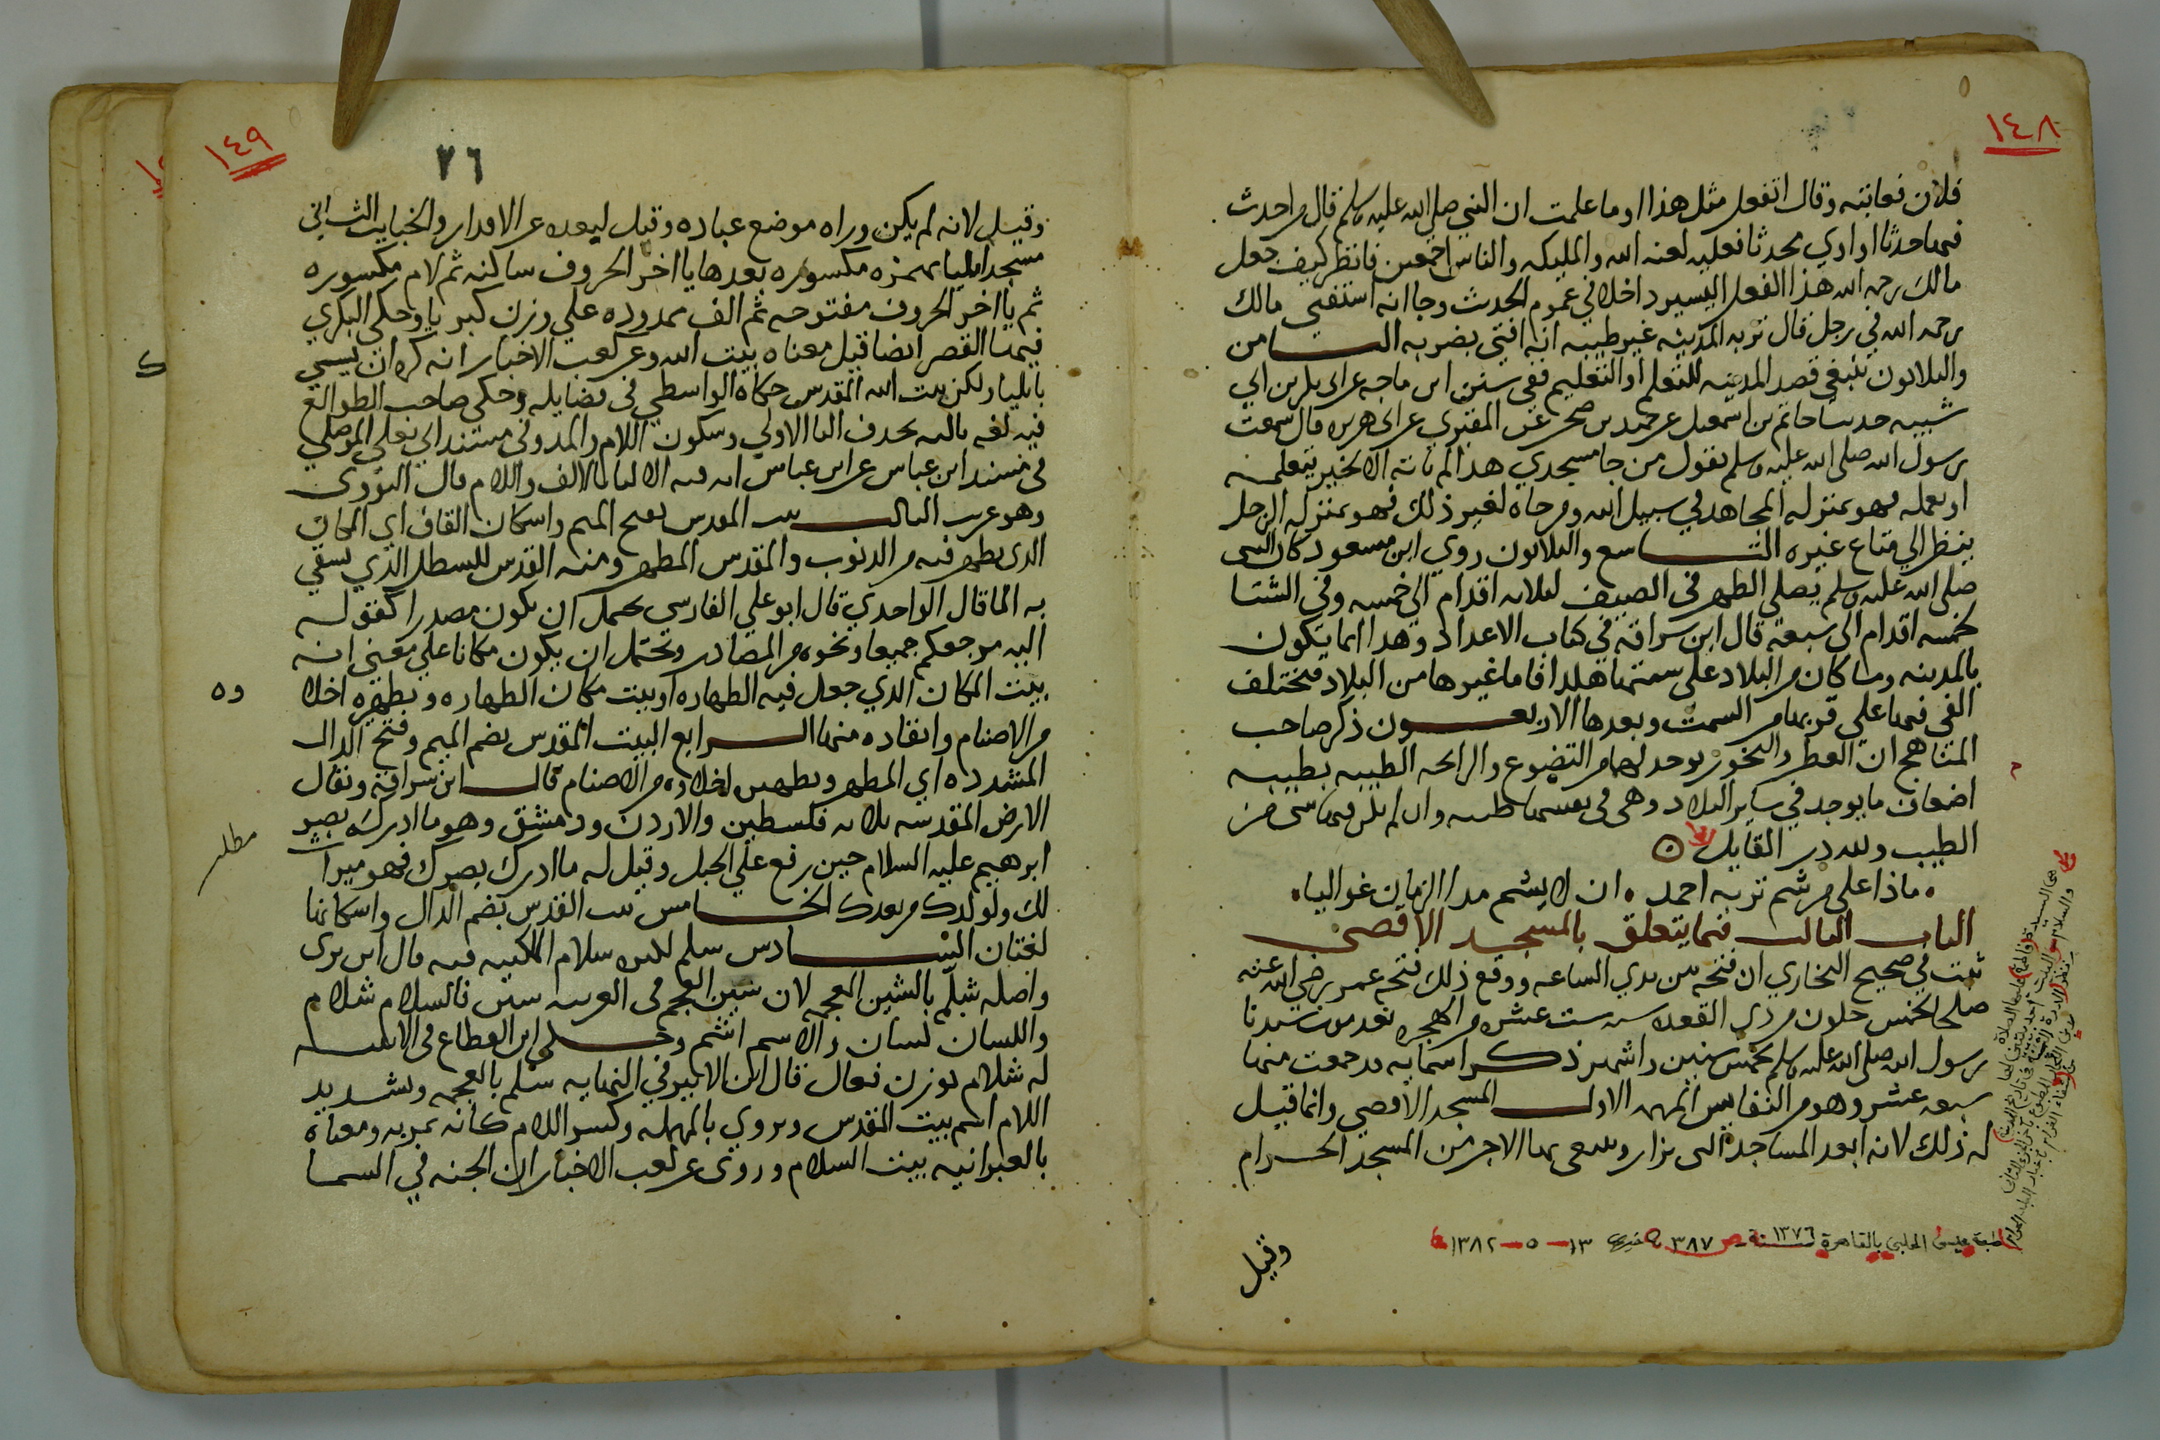 ١٤٨
فلان فعاتبته وقال اتفعل مثل هذا اوما علمت ان النبي صلى الله عليه وسلم قال من احدث
فيها حدثا او اوي محدثا فعليه لعنه الله والمليكه والناس اجمعين فانظر كيف جعل
مالك رحمه الله هذا الفعل اليسير داخلا في عموم الحدث وجا انه استفتي مالك
رحمه الله في رجل قال تربه المدينه غير طيبه انه افتي بضربه الثامن
والثلاثون ينبغي قصد المدينه للتعلم او التعليم ففي سنن ابن ماجه عن ابي بكر بن ابي
شيبه حدثنا حاتم بن اسمعيل عن حميد بن صخر عن المقبري عن ابي هريره قال سمعت
رسول الله صلى الله عليه وسلم يقول من جا مسجدي هذا لم ياته الا لخير يتعلمه
او يعلمه فهو بمنزله المجاهد في سبيل الله ومن جاه لغير ذلك فهو بمنزله الرجل
ينظر الي متاع غيره التاسع والثلاثون روي ابن مسعود كان النبي
صلى الله عليه وسلم يصلي الظهر في الصيف ثلاثه اقدام الي خمسه وفي الشتا
خمسه اقدام الي سبعه قال ابن سراقه في كتاب الاعداد وهذا انما يكون
بالمدينه وما كان من البلاد علي سمتها هكذا فاما غيرها من البلاد فيختلف
الفي فيها علي قربها من السمت وبعدها الاربعون ذكر صاحب
المناهج ان العطر والبخور يوجد لهما من التضوع والرايحه الطيبه بطيبه
اضعاف ما يوجد في ساير البلاد وهي في نفسها طيبه وان لم يكن فيها شي من
الطيب ولله در القايل
ماذا علي من شم تربه احمد ان لا يشم مدا الزمان غواليا
الباب الثالث فيما يتعلق بالمسجد الاقصى
ثبت في صحيح البخاري ان فتحه من بدي الساعه ووقع ذلك فتحه عمر رضي الله عنه
صلحا لخمس خلون من ذي القعده سنه ست عشره من الهجره بعد موت سيدنا
رسول الله صلى الله عليه وسلم بخمس سنين واشهر ذكر اسمايه قد جمعت منها
سبعه عشر وهو من النفايس المهمه الاول المسجد الاقصي وانما قيل
له ذلك لانه ابعد المساجد التي تزار ويبتغي بها الاجر من المسجد الحرام
وقيل
طبعة عيسى الحلبي بالقاهرة سنة ١٣٧٦ ص ٣٨٧ ١٣ – ٥ – ١٣٨٢
١٤٩
٢٦
وقيل لانه لم يكن وراه موضع عباده وقيل لبعده عن الاقدار والخبايث الثاني
مسجد ايليا بهمزه مكسوره بعدها يا اخر الحروف ساكنه ثم لام مكسوره
ثم يا اخر الحروف مفتوحه ثم الف ممدوده علي وزن كبريا وحكي البكري
فيها القصر ايضا قيل معناه بيت الله وعن كعب الاخبار انه كره ان يسمي
بايليا ولكن بيت الله المقدس حكاه الواسطي في فضايله وحكي صاحب الطوالع
فيه لغه ثالثه بحذف اليا الاولي وسكون اللام والمد وفي مسند ابي يعلي الموصلي
في مسند ابن عباس عن ابن عباس انه فيه الايليا بالالف واللام قال النووي
وهو غريب الثالث بيت المقدس بفتح الميم واسكان القاف اي المكان
الذي يطهر فيه من الذنوب والمقدس المطهر ومنه القدس للسطل الذي يسقي
به الما قال الواحدي قال ابو علي الفارسي يحتمل ان يكون مصدرا كقوله
اليه مرجعكم جميعا ونحوه من المصادر ويحتمل ان يكون مكانا علي معني انه
بيت المكان الذي جعل فيه الطهاره او بيت مكان الطهاره وتطهيره اخلا
وه
من الاصنام وابعاده منها الرابع البيت المقدس بضم الميم وفتح الدال
المشدده اي المطهر وتطهيره اخلاوه من الاصنام قال ابن سراقه ويقال
الارض المقدسه ثلاثه فلسطين والاردن ودمشق وهو ما ادركه بصر
مطلب
ابرهيم عليه السلام حين رفع علي الجبل وقيل له ما ادرك بصرك فهو ميراث
لك ولولدك من بعدك الخامس بيت القدس بضم الدال واسكانها
لغتان السادس سلم لكثره سلام الملكيه فيه قال ابن بري
واصله شلم بالشين المعجمه لان شين العجم في العربيه سين فالسلام شلام
واللسان لشان والاسم اشم وحكي ابن القطاع في الابنيه
له شلام بوزن فعال قال ابن الاثير في النهايه شلم بالمعجمه وتشديد
اللام اسم بيت المقدس ويروي بالمهمله وكسر اللام كانه عربه ومعناه
بالعبرانيه بيت السلام وروي عن كعب الاخبار ان الجنه في السما